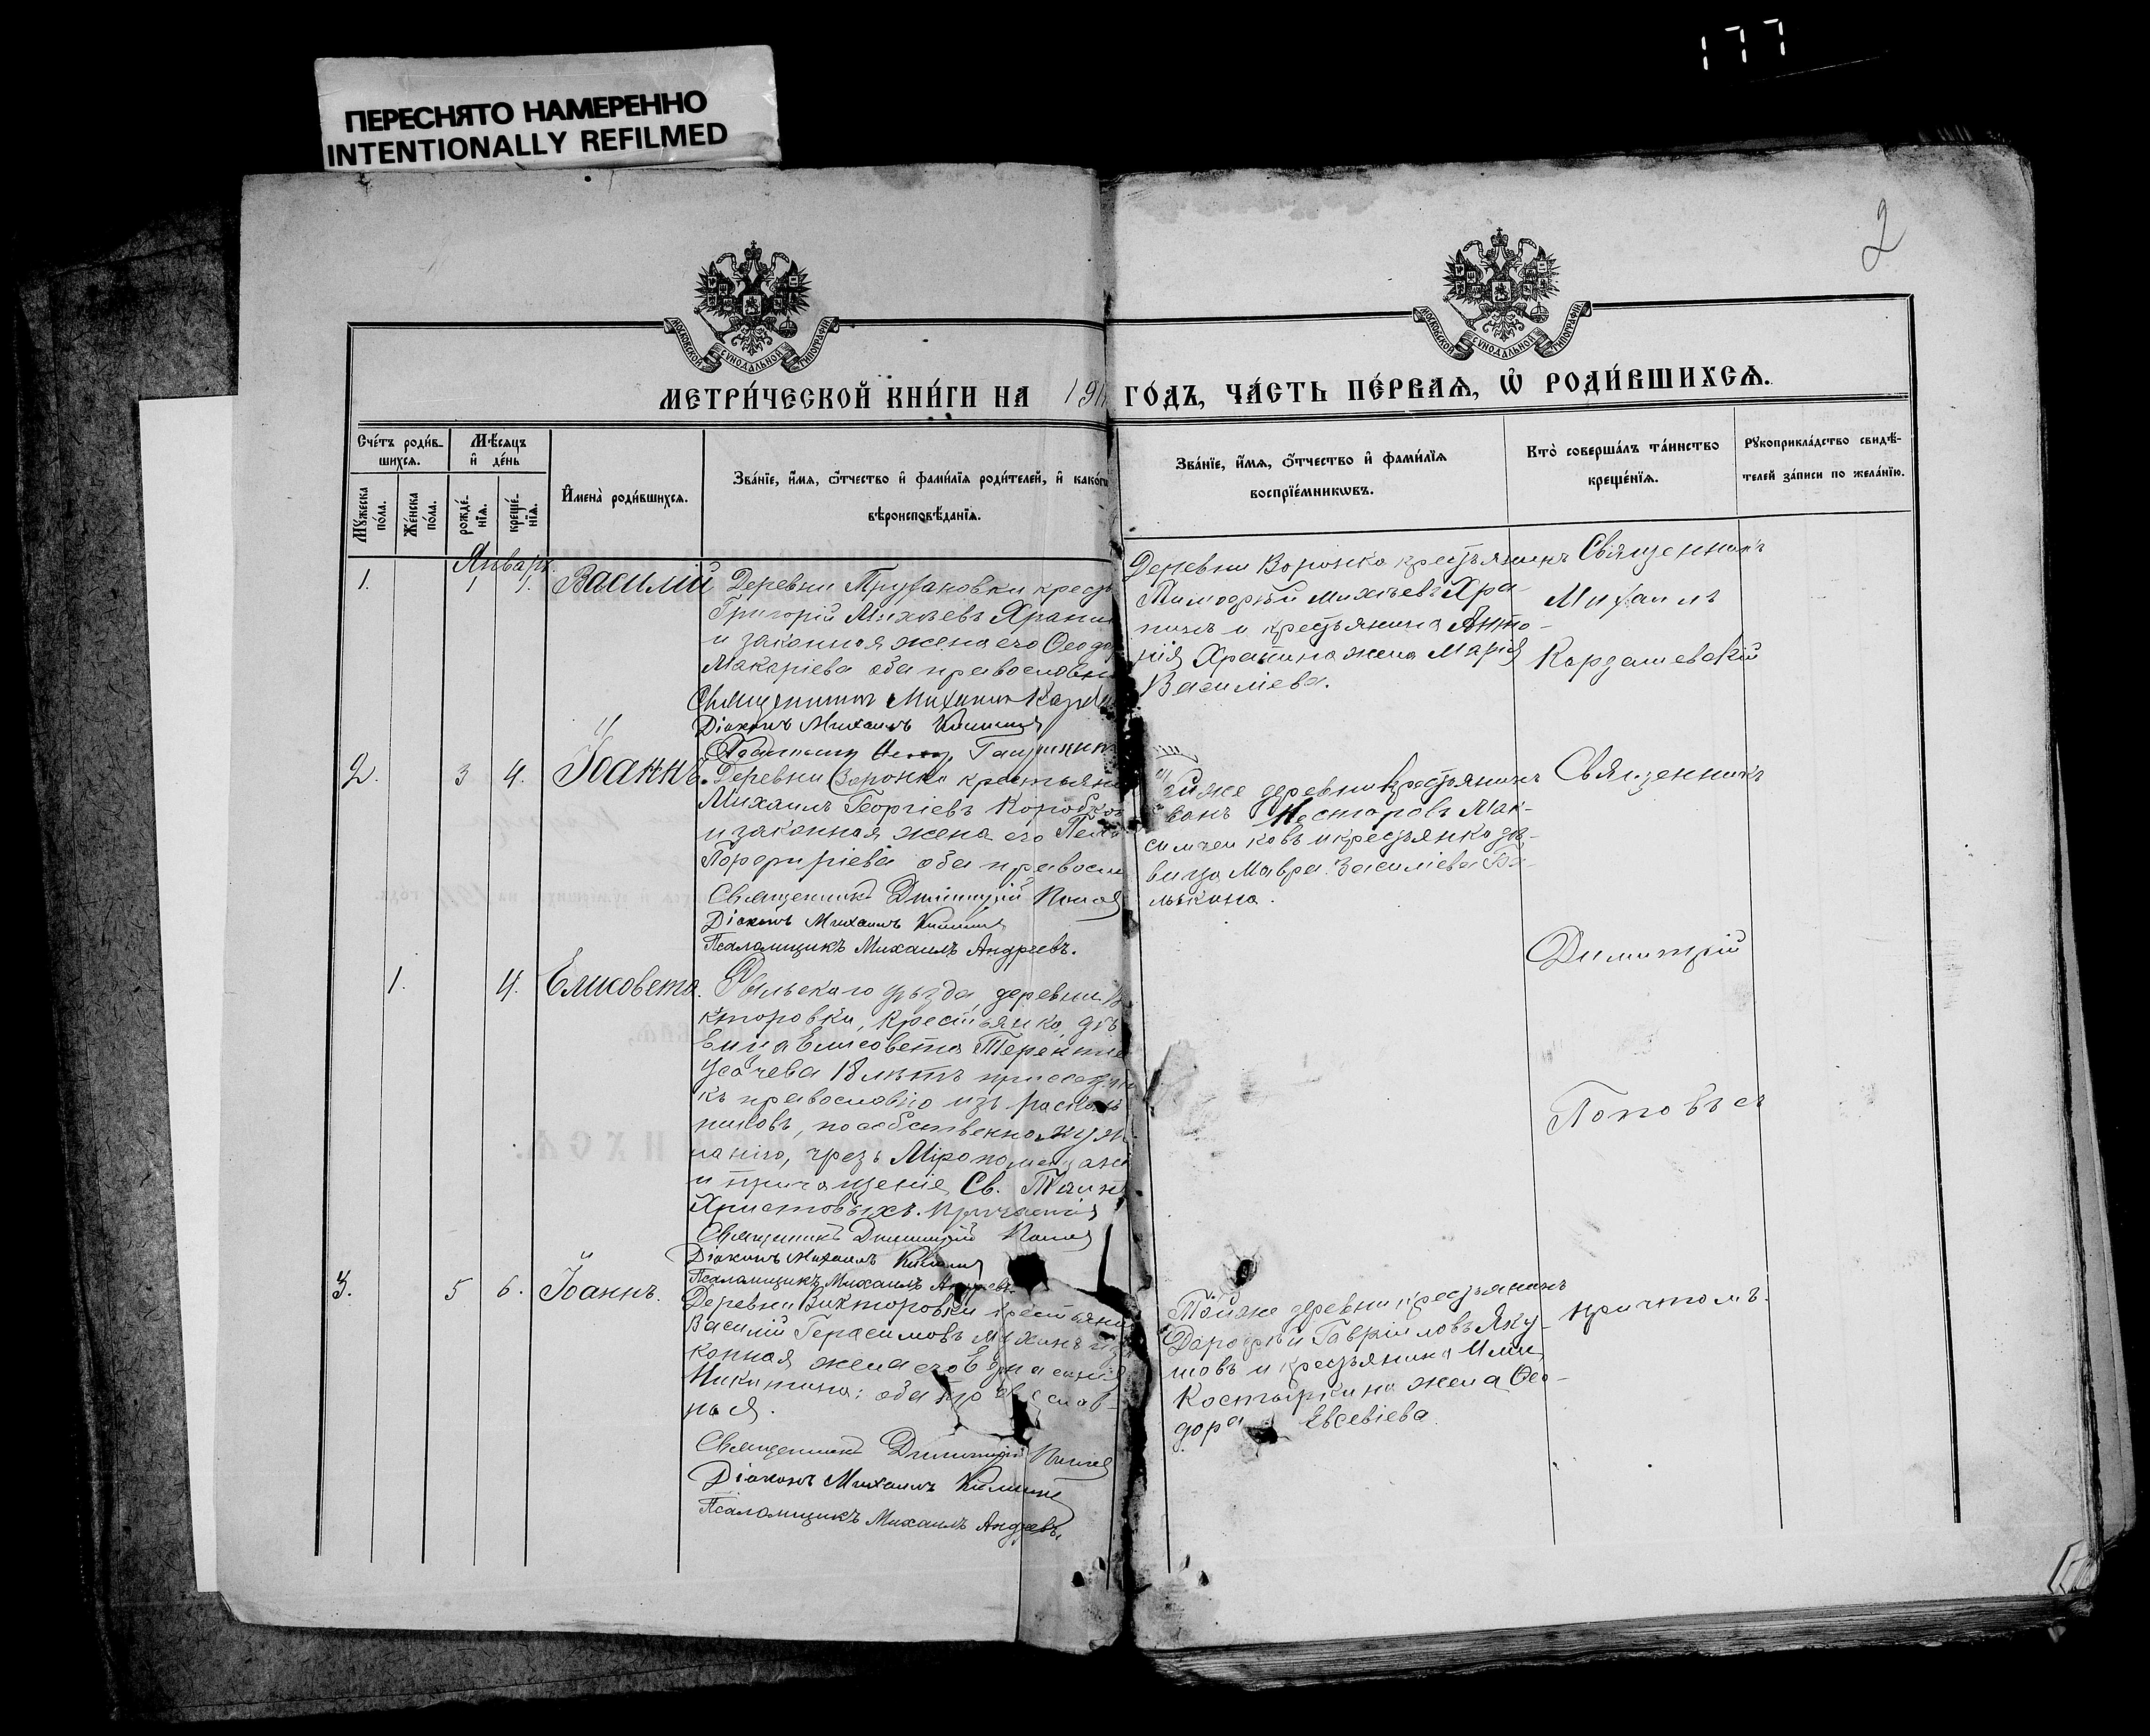 177
ПЕРЕСНЯТО НАМЕРЕННО
INTENTIONALLY REFILMED
2
МОСКОВСКОЙ СѴНОДАЛЬНОЙ ТИПОГРАФІИ
МОСКОВСКОЙ СѴНОДАЛЬНОЙ ТИПОГРАФІИ
МЕТРИ́ЧЕСКОЙ КНИ́ГИ НА 191
ГО́ДЪ, ЧА́СТЬ ПЕ́РВАѦ, Ѡ҆ РОДИ́ВШИХСѦ.
Счéтъ роди́в-
шихсѧ.
Мѣ́сѧцъ
и҆ де́нь
Мꙋ́жеска
по́ла.
Же́нска
по́ла.
рожде́-
нїѧ.
креще́-
нїѧ.
И҆мена̀ роди́вшихсѧ.
Зва́нїе, и҆́мѧ, ѻ҆́тчество и҆ фами́лїѧ роди́телей, и҆ како́гѡ
вѣроисповѣ́данїѧ.
Зва́нїе, и҆́мѧ, ѻ҆́тчество и҆ фами́лїѧ
воспрїе́мникѡвъ.
Кто̀ соверша́лъ та́инство
креще́нїѧ.
Рꙋкоприкла́дство свидѣ́-
телей за́писи по жела́нїю.
Январь.
1. 1 1. Василій
Деревни Труфановки крест
Григорій Михѣевъ Храпи
и законная жена его Ѳеодо
Макаріева оба православн
Священникъ Михаилъ Кард
Діаконъ Михаилъ
Деревни Воронка крестьянинъ
Тимофѣй Михѣевъ Хра-
пинъ и крестьянина
Храпина жена Марія
Василіева.
Священникъ
Михаилъ
Кардашевскій
2. 3 4. Іоаннъ.
Деревни Воронка крестьяни
Михаилъ Георгіевъ Коробко
и законная жена его Пела
Порфиріева оба правосл
Священникъ Димитрій Попов
Діаконъ Михаилъ
Псаломщикъ Михаилъ Андреевъ.
же деревни крестьянинъ
Несторовъ Мак-
симен ковъ и крестьянка дѣ-
вица Мавра Василіева Ба-
лыкина.
Священникъ
Димитрій
Поповъ съ
1. 4. Елисовета.
Рыльскаго уѣзда, деревни Ви
кторовки, крестьянка, дѣ
вица Елисовета Терентіе
Усачева 18 лѣтъ присоедин
къ православію изъ раскол
никовъ, по собственному же
ланію, чрезъ Мѵропомазані
и причащеніе Св. Таинъ
Христовыхъ.
Священникъ Димитрій Попов
Діаконъ Михаилъ
Псаломщикъ Михаилъ Андреевъ.
3. 5 6. Іоаннъ.
Деревни Викторовки крестьяни
Василій Герасимовъ
конная жена его
Никитина: оба православ-
ныя.
Священникъ Димитрій Попов
Діаконъ Михаилъ
Псаломщикъ Михаилъ Андреевъ.
Той же деревни крестьянинъ
Дорофѣй Гавріиловъ Яку-
шовъ и крестьянина Иліи
Костыркина жена Ѳео-
дора Евсевіева.
причтомъ.